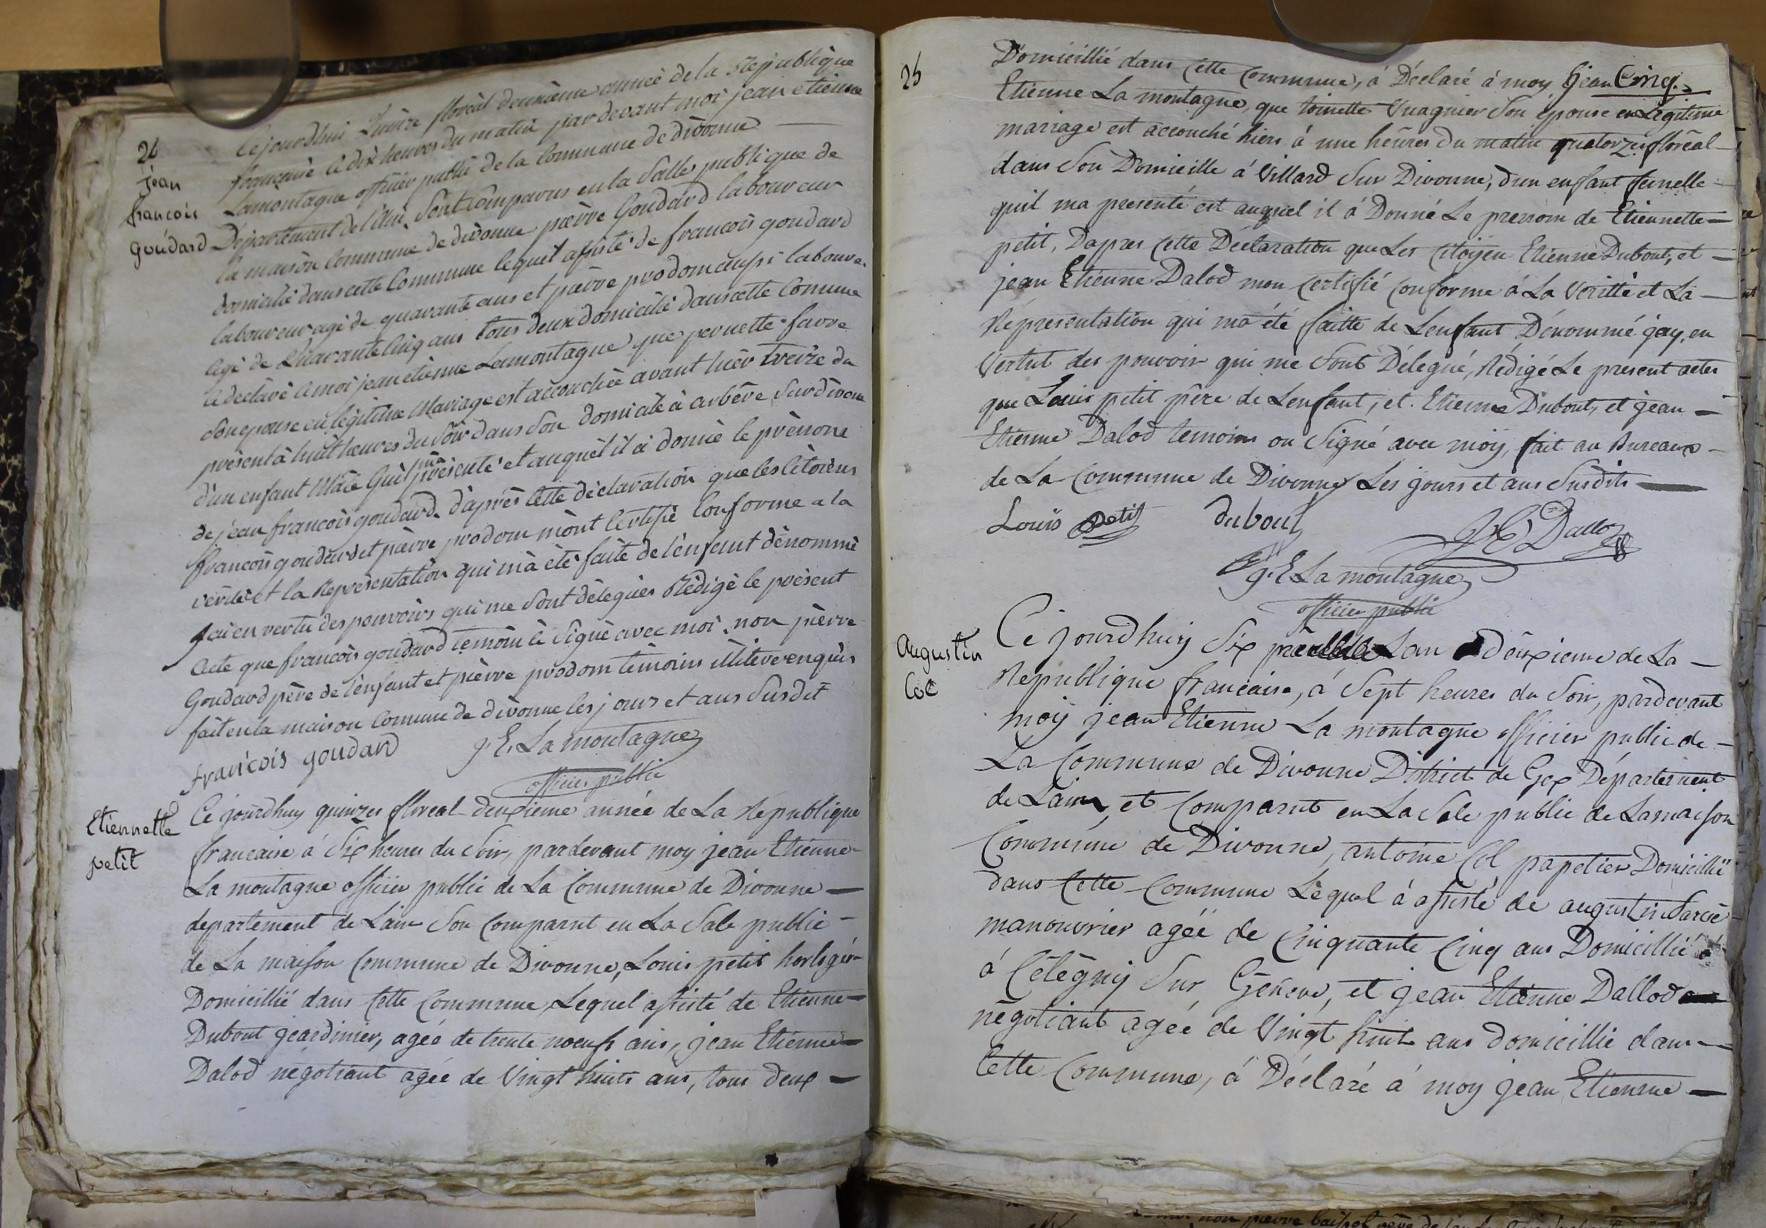 24
jean
francois
goudard
Cejourdhui quinze floréal deuxieme année de la République
francaise à dix heures du matin par devant moi jean etienne
Lamontagne officier public de la Commune de divonne
Département de l'Ain, sont comparus en la Salle publique de
la maison Commune de divonne pierre Goudard laboureur
domicilié dans cette Commune lequel assisté de francois goudard
laboureur agé de quarante ans et pierre prodom aussi laboureur
agé de quarante cinq ans tous deux domicilié dans cette Comune
a déclaré à moi jean etienne Lamontagne que pernette favre
son epouse en légitime Mariage est accouchée avant hièr treize du
présent à huit heures du soir dans son domicile à arbère sur divonne
d'un enfant Mâle Qu'il m'a présenté et auquel il a donné le prénom
de jean francois goudard. d'après cette déclaration que les citoiens
francois goudard et pierre prodom m'ont certifié Conforme a la
vérité et la Représentation qui m'a été faite de l'enfant dénommé
j'ai en vertu des pouvoirs qui me sont délégués Rédigé le présent
acte que francois goudard témoin à signé avec moi. non pierre
Goudard père de l'enfant et pierre prodom témoins illiteré enquis
fait en la maison Comune de divonne les jours et ans susdit
francois goudard j. E. La montagne
officier public
Etiennette
petit
Ce jourdhuy quinzes floreal deuxieme année de La République
francaise à Six heures du Soir, pardevant moy jean Etienne
La montagne officier public de La Commune de Divonne
departement de Lain Son Comparut en La Sale public
de La maison Commune de Divonne, Louis petit horloger
Domicillié dans Cette Commune, Lequel assisté de Etienne
Dubout jeardinier, agée de trente noeufs ans, jean Etienne
Dalod négotiant agée de Vingt huits ans, tous deux
25
Domicillié dans Cette Commune, à Déclaré à moy jean Cinq.
Etienne La montagne, que tomette Vuagnier Son epouse en Légitime
mariage est accouché hiers à une heures du matin quatorze floréal
dans Son Domicille à Villard Sur Divonne, d'un enfant femelle
quil ma presenté est auquel il à Donné Le prenom de Etiennette
petit, Dapres Cette Déclaration que Les Citoyen Etienne Dubout, et
jean Etienne Dalod mon Certifié Conforme à La Veritté et La
Représentation qui ma été faitte de Lenfant Dénommé jay, en
Vertut des pouvoir qui me Sont Délegué, Rédigé Le present actes
que Louis petit père de Lenfant, et Etienne Dubout, et jean
Etienne Dalod temoins on Signé avec moÿ, fait au Bureaux
de La Commune de Divonne Les jours et ans Susdits
Louis petit dubout J E Dallod
j. E La montagne
officier public
Augustin
Col
Ce jourdhuy Six Lan deuxieme de La
République francaise, à Sept heures du Soir, pardevant
moÿ jean Etienne La montagne officier public de
La Commune de Divonne District de Gex Département
de Lain, et Comparut en La Sale public de Lamaison
Commune de Divonne, antoine Col papetier Domicillié
dans Cette Commune Lequel à assisté de augustin
manouvrier agée de Cinquante Cinq ans Domicillié
à Célégny Sur Génève, et jean Etienne Dallod
négotiant agée de Vingt huit ans domicillié dans
Cette Commune, à Déclaré à moy jean Etienne